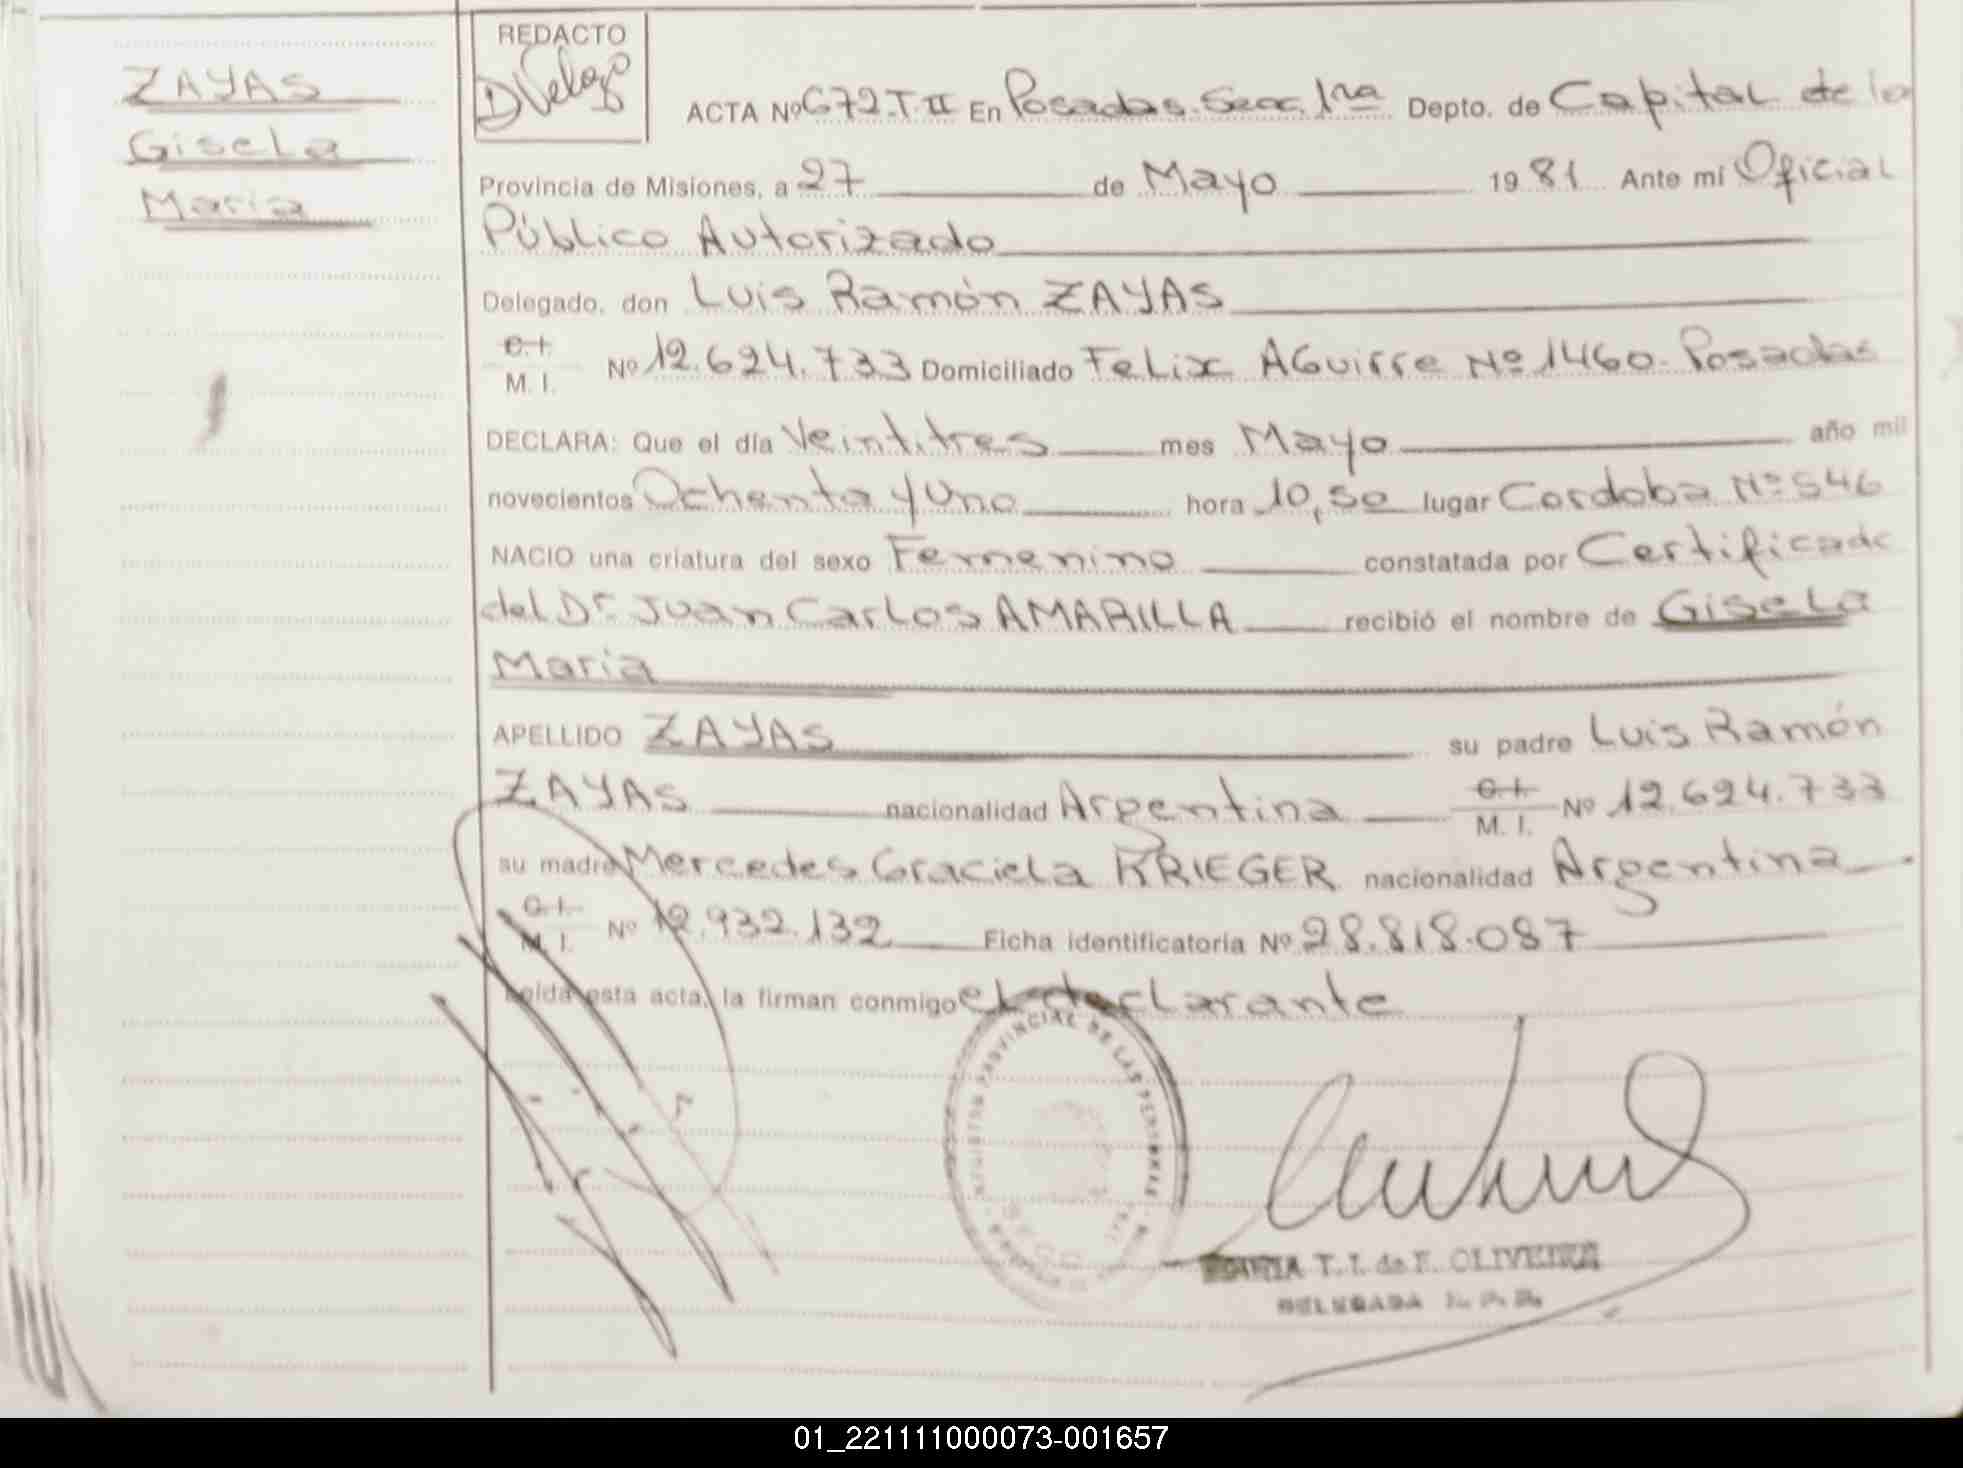 ZAYAS
Gisela
Maria
REDACTO
DVelozo
ACTA Nº 672.T II En Posadas. Secc. 1ra Depto. de Capital de la
Provincia de Misiones, a 27 de Mayo 1981 Ante mí Oficial
Público Autorizado
Delegado, don Luis Ramón ZAYAS
C.I.
M. I. Nº 12.624.733 Domiciliado Felix Aguirre Nº 1460. Posadas
DECLARA: Que el día Veintitres mes Mayo año mil
novecientos Ochenta y Uno hora 10,50 lugar Cordoba Nº 546
NACIO una criatura del sexo Femenino constatada por Certificado
del Dr. Juan Carlos AMARILLA recibió el nombre de Gisela
Maria
APELLIDO ZAYAS su padre Luis Ramón
ZAYAS nacionalidad Argentina C.I.
M. I. Nº 12.624.733
su madre Mercedes Graciela KRIEGER nacionalidad Argentina
C.I.
M. I. Nº 12.932.132 Ficha identificatoria Nº 28.818.087
Leída esta acta, la firman conmigo el declarante
REGISTRO PROVINCIAL DE LAS PERSONAS
MARIA T. I. de F. OLIVEIRA
DELEGADA R. P. P.
01_221111000073-001657